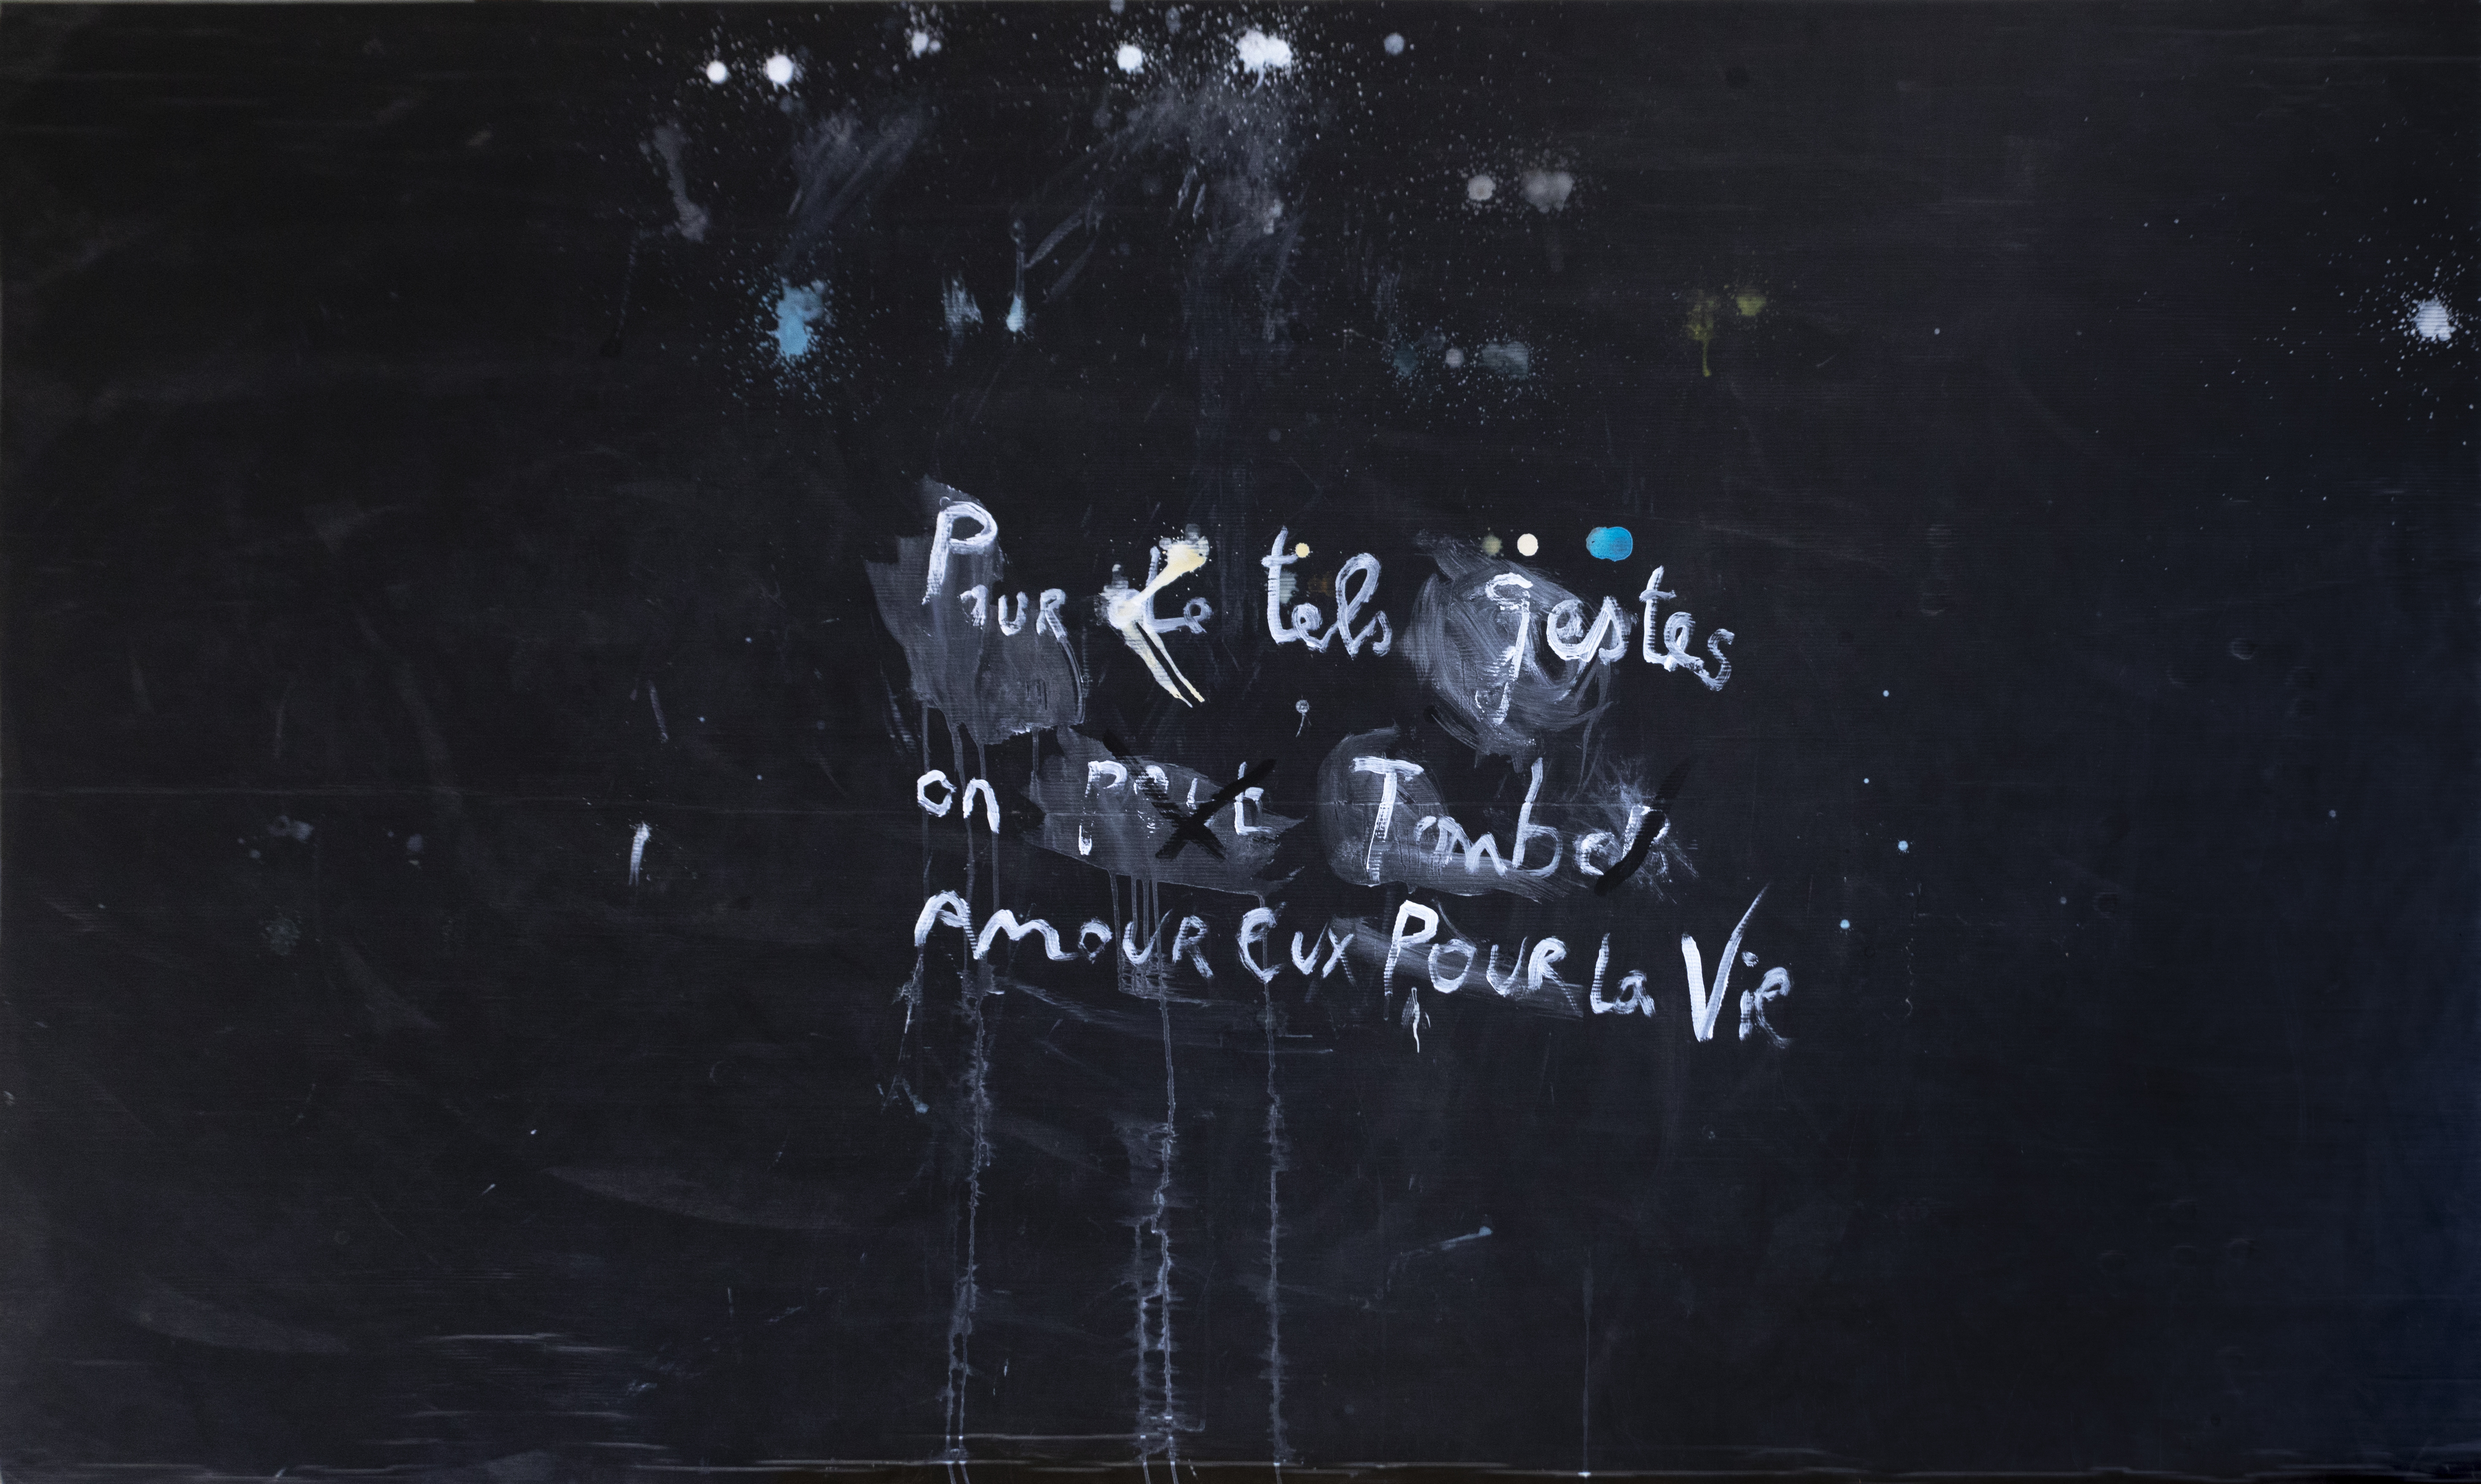 Pour de tels gestes
on peut Tomber
Amoureux Pour la Vie